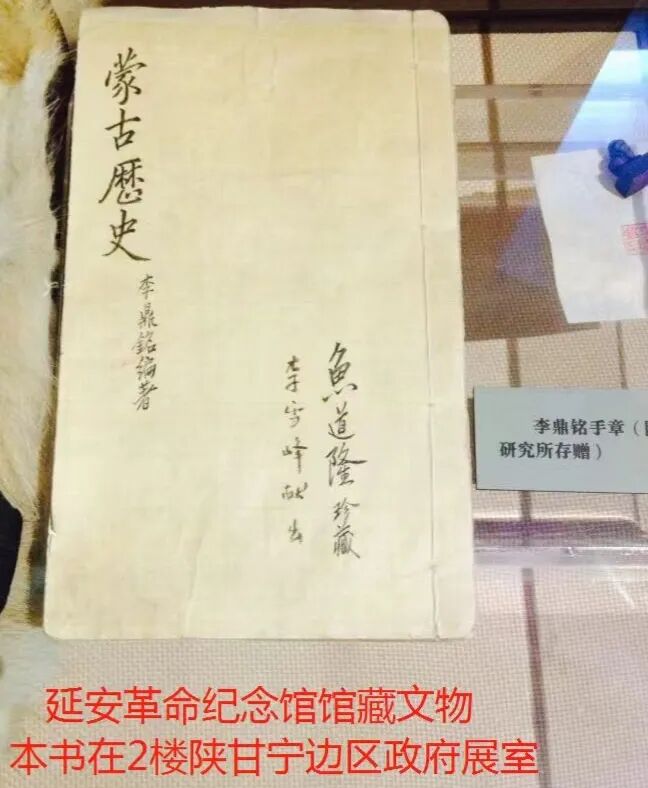 蒙古歷史
李鼎銘編著
魚道隆珍藏
李雪峰献出
李鼎铭手章（
研究所存赠）
延安革命纪念馆馆藏文物
本书在2楼陕甘宁边区政府展室